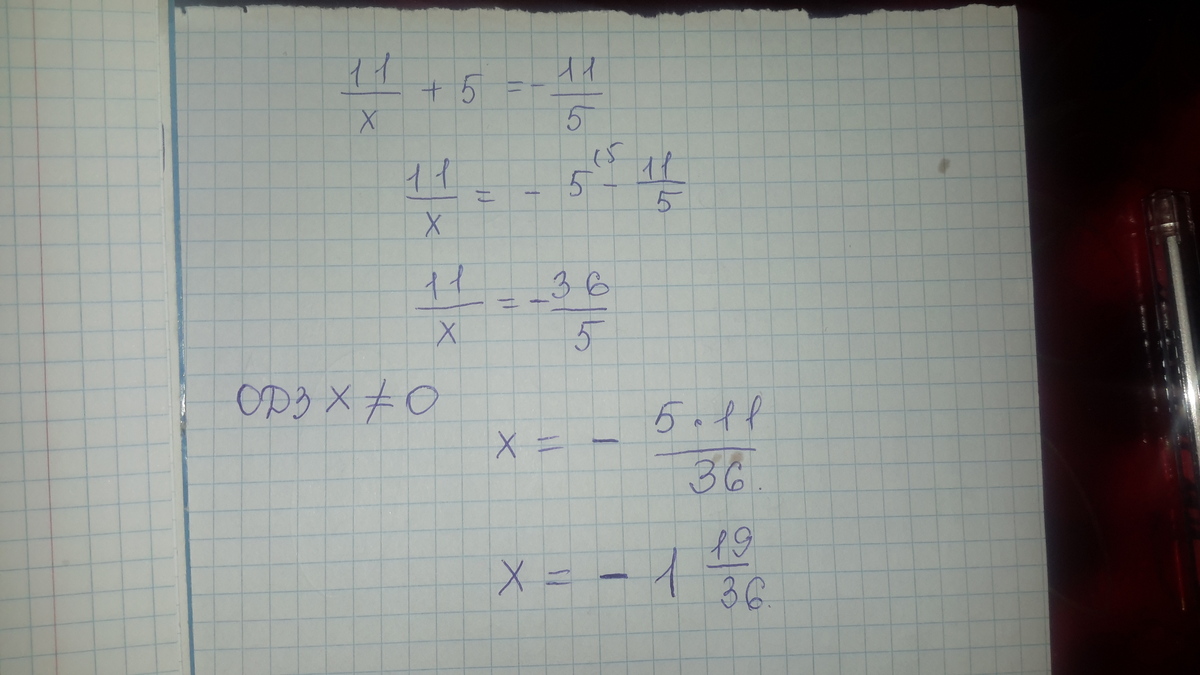 11/x + 5 = - 11/5
11/x = - 5 (5 - 11/5
11/x = - 36/5
ОДЗ x ≠ 0
x = - 5·11/36.
x = - 1 19/36.